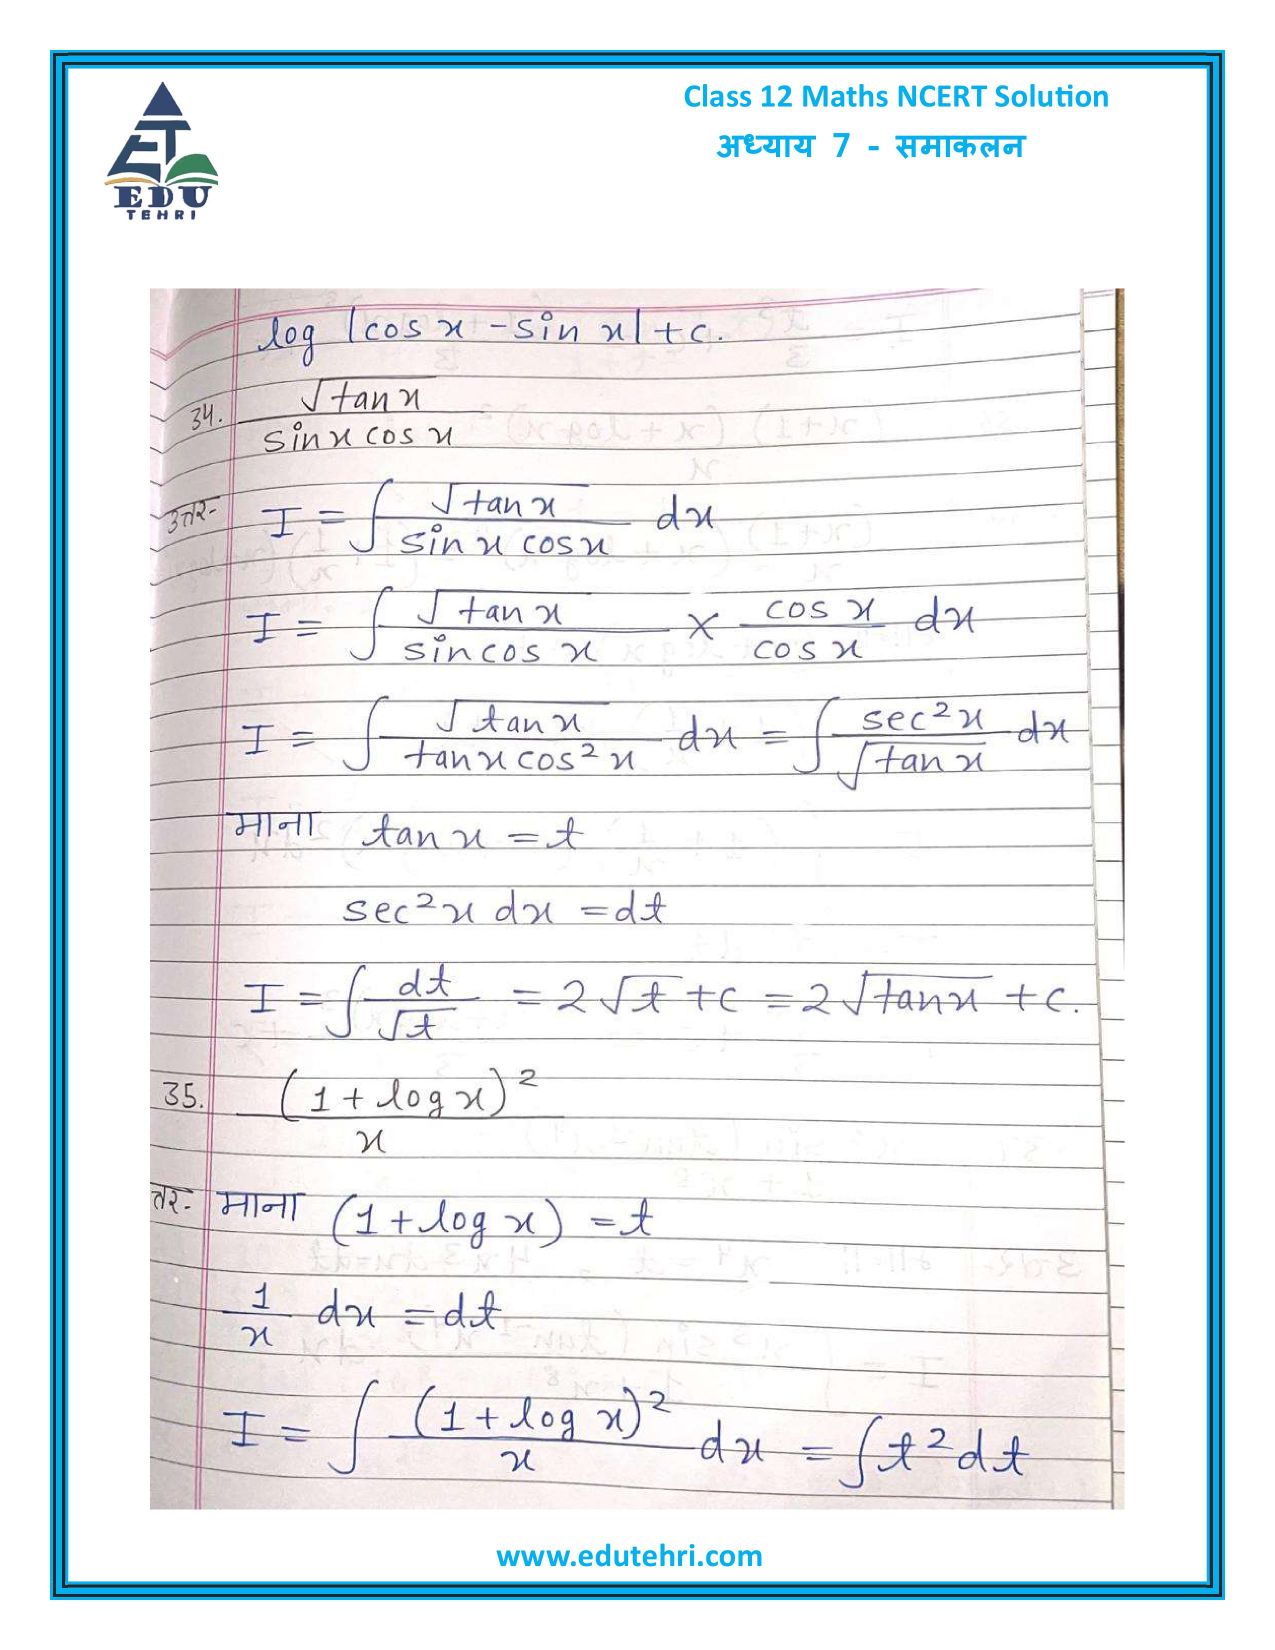 EDU
TEHRI
Class 12 Maths NCERT Solution
अध्याय 7 - समाकलन
log |cos x - sin x| + c.
34. √tan x / sin x cos x
उत्तर- I = ∫ √tan x / sin x cos x dx
I = ∫ √tan x / sin cos x × cos x / cos x dx
I = ∫ √tan x / tan x cos² x dx = ∫ sec² x / √tan x dx
माना tan x = t
sec² x dx = dt
I = ∫ dt / √t = 2√t + c = 2√tan x + c.
35. (1 + log x)² / x
तर- माना (1 + log x) = t
1/x dx = dt
I = ∫ (1 + log x)² / x dx = ∫ t² dt
www.edutehri.com